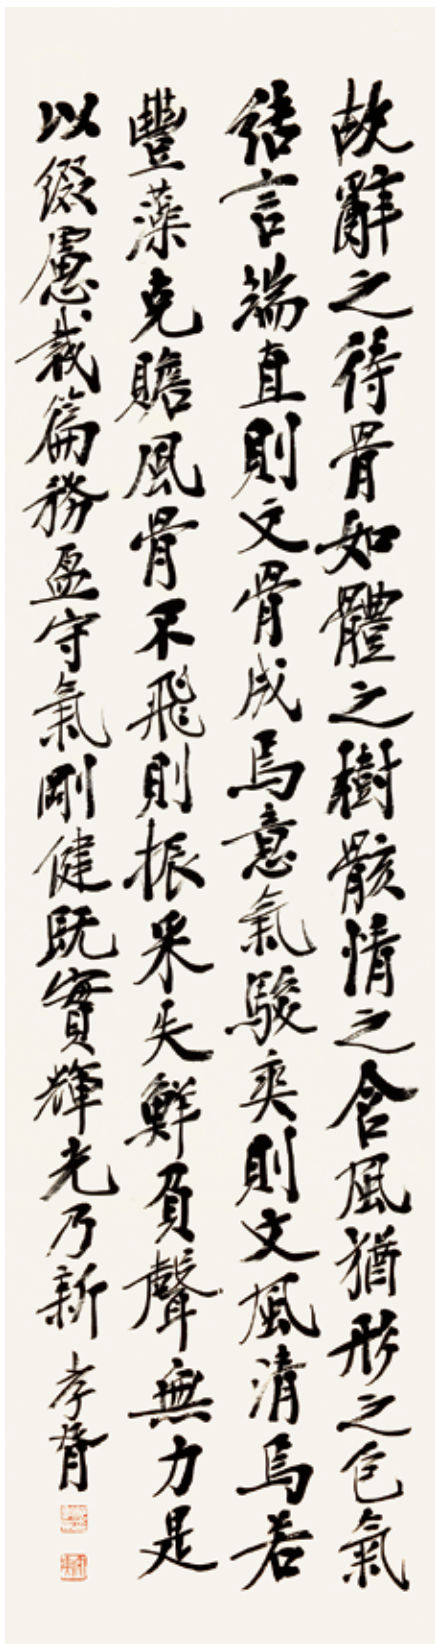 故辭之待骨如體之樹骸情之含風猶形之包氣
結言端直則文骨成焉意氣駿爽則文風清焉若
豐藻克贍風骨不飛則振采失鮮負聲無力是
以綴慮裁篇務盈守氣剛健既實輝光乃新 孝胥